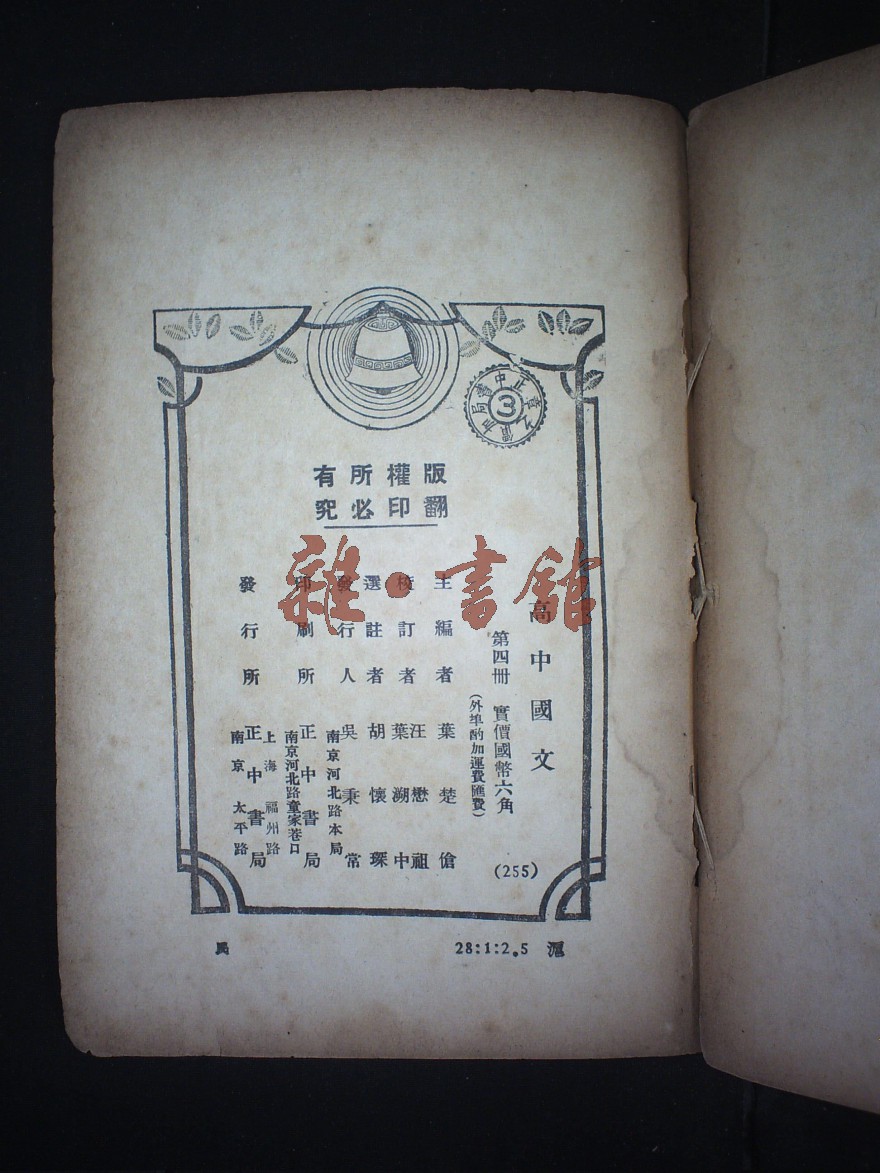 版權所有
翻印必究
高中國文
第四冊 實價國幣六角
(外埠酌加運費匯費)
(255)
主編者 葉楚傖
校訂者 汪懋祖
葉溯中
選註者 胡懷琛
發行人 吳秉常
南京河北路本局
印刷所 正中書局
南京河北路童家巷口
發行所 正中書局
上海福州路
南京太平路
28:1:2.5 滬
雜·書館
正中書局
3